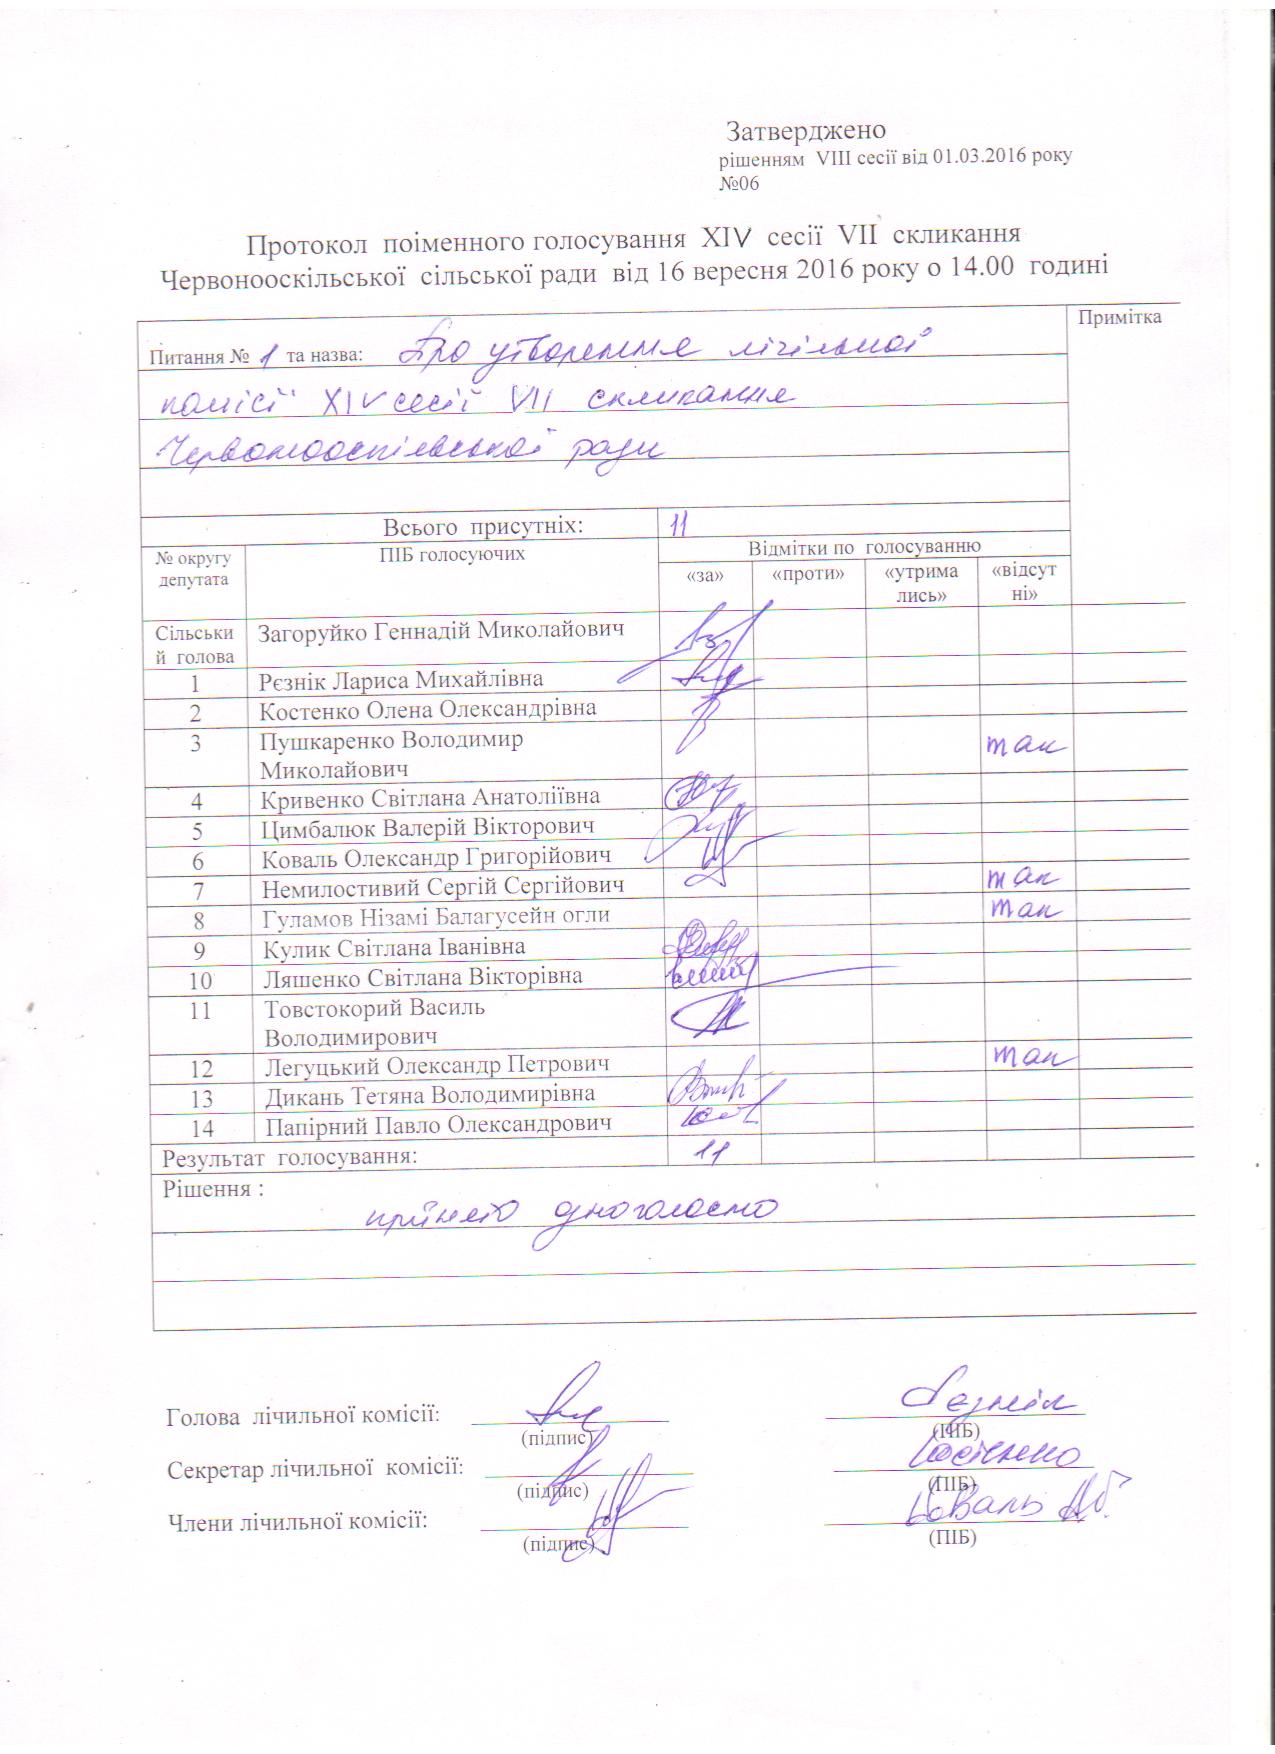 Затверджено
рішенням VIII сесії від 01.03.2016 року
№06
Протокол поіменного голосування XIV сесії VII скликання
Червонооскільської сільської ради від 16 вересня 2016 року о 14.00 годині
Питання № 1 та назва: Про утворення лічільної Примітка
комісії XIV сесії VII скликання
Червонооскільської ради
Всього присутніх: 11
№ округу депутата ПІБ голосуючих Відмітки по голосуванню
«за» «проти» «утрима лись» «відсут ні»
Сільськи Загоруйко Геннадій Миколайович
й голова
1 Рєзнік Лариса Михайлівна
2 Костенко Олена Олександрівна
3 Пушкаренко Володимир так
Миколайович
4 Кривенко Світлана Анатоліївна
5 Цимбалюк Валерій Вікторович
6 Коваль Олександр Григорійович
7 Немилостивий Сергій Сергійович так
8 Гуламов Нізамі Балагусейн огли так
9 Кулик Світлана Іванівна
10 Ляшенко Світлана Вікторівна
11 Товстокорий Василь
Володимирович
12 Легуцький Олександр Петрович так
13 Дикань Тетяна Володимирівна
14 Папірний Павло Олександрович
Результат голосування: 11
Рішення :
прийнято одноголосно
Голова лічильної комісії: Рєзнік
(підпис) (ПІБ)
Секретар лічильної комісії:
(підпис) (ПІБ)
Члени лічильної комісії: Коваль
(підпис) (ПІБ)